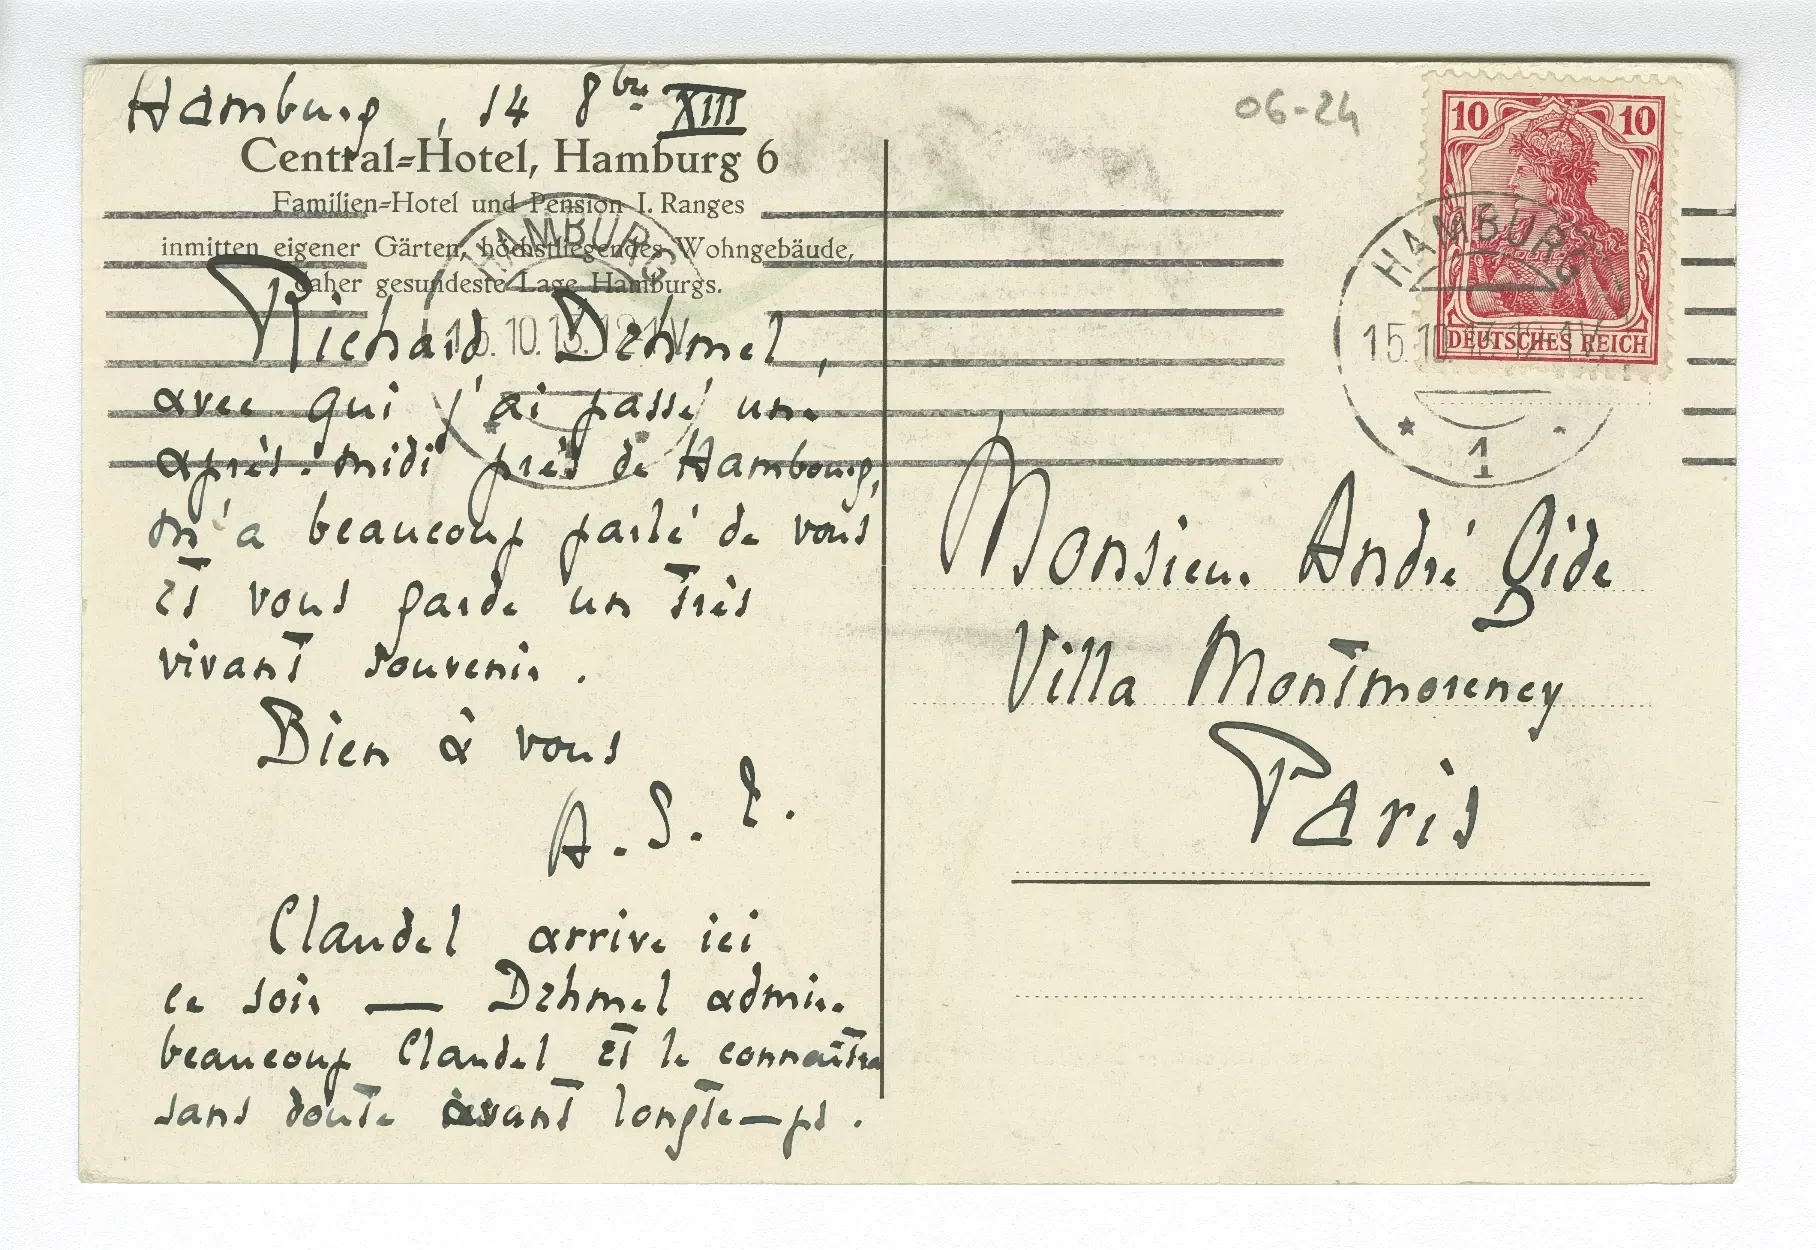 Hamburg, 14 8bre XIII
Central=Hotel, Hamburg 6
Familien=Hotel und Pension I. Ranges
inmitten eigener Gärten, höchstliegendes Wohngebäude,
daher gesundeste Lage Hamburgs.
Richard Dehmel,
avec qui j'ai passé une
après-midi près de Hambourg,
m'a beaucoup parlé de vous
et vous garde un très
vivant souvenir.
Bien à vous
A. S. L.
Claudel arrive ici
ce soir — Dehmel admire
beaucoup Claudel et le connaîtra
sans doute avant longtemps.
HAMBURG
15.10.13. 12-1 V.
* 1
06-24
10 10
DEUTSCHES REICH
HAMBURG
15.10.13. 12-1 V.
* 1
Monsieur André Gide
Villa Montmorency
Paris